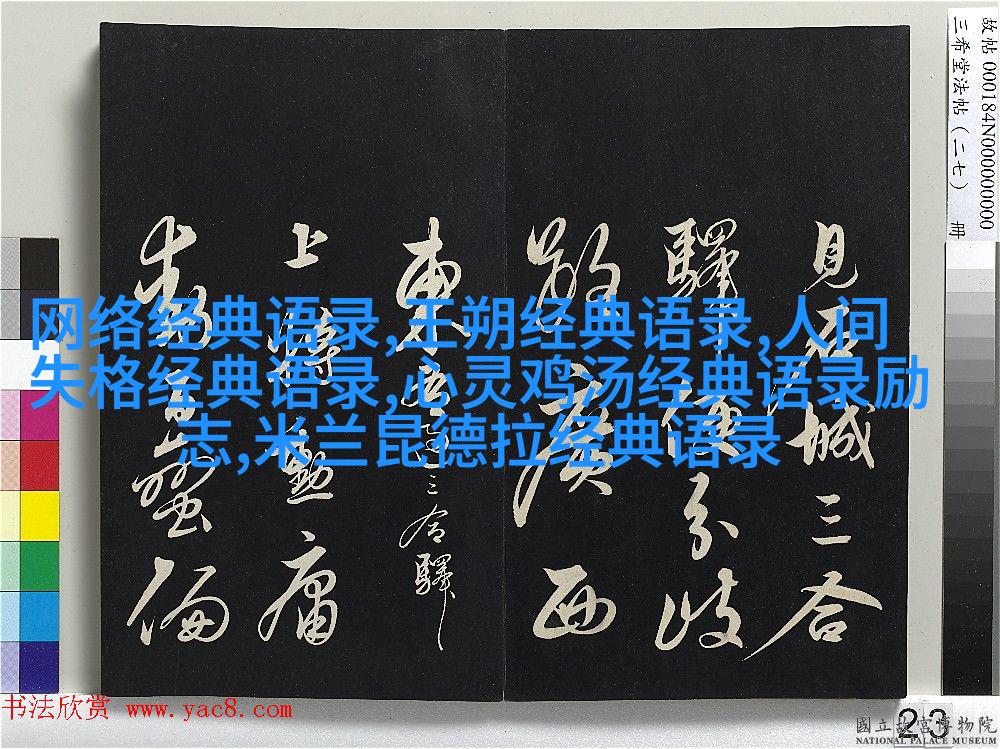 故帖 000184N000000000
三希堂法帖（二七） 冊
見城三合
驛分歧
廣西
東三合驛
上勳庸
网络经典语录,王朔经典语录,人间
失格经典语录,心灵鸡汤经典语录励
志,米兰昆德拉经典语录
书法欣赏 www.yac8.com
23
國立故宮博物院
NATIONAL PALACE MUSEUM